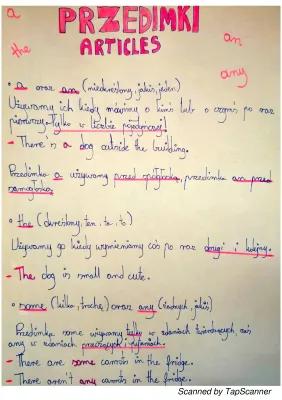 a
PRZEDIMKI
the
ARTICLES
an
any
• a oraz an (nieokreślony, jakiś, jeden)
Używamy ich kiedy mówimy o kimś lub o czymś po raz
pierwszy. Tylko w liczbie pojedynczej!
- There's a dog outside the building.
Przedimka a używamy przed spółgłoską, przedimka an przed
samogłoską.
• the (określony, ten, ta, to)
Używamy go kiedy wymieniamy coś po raz drugi i kolejny.
- The dog is small and cute.
• some (kilka, trochę) oraz any (żadnych, jakiś)
Przedimka some używamy tylko w zdaniach twierdzących, zaś
any w zdaniach przeczących i pytaniach.
- There are some carrots in the fridge.
- There aren't any carrots in the fridge.
Scanned by TapScanner